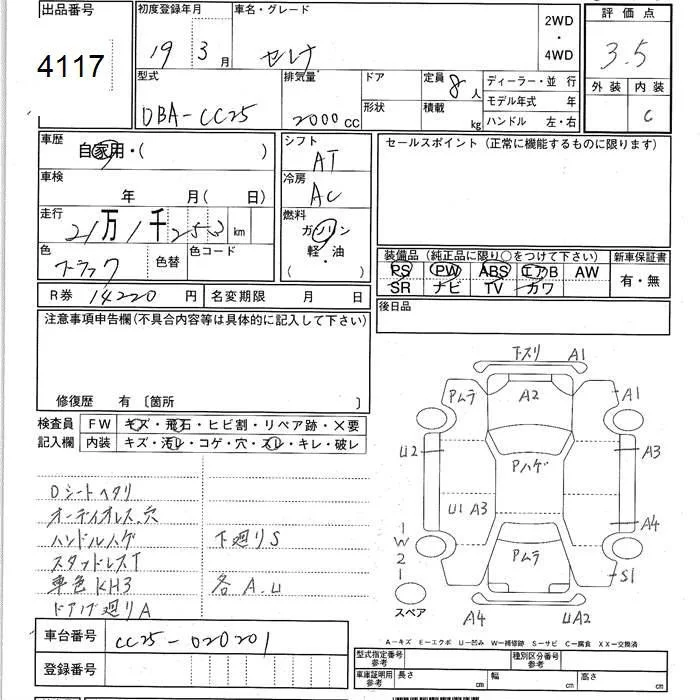 出品番号
4117
初度登録年月
19 3 月
車名・グレード
セレナ
2WD
・
4WD
評価点
3.5
外装 内装
C
型式
DBA-CC25
排気量
2000 CC
ドア
形状
定員 8 人
積載 kg
ディーラー・並 行
モデル年式 年
ハンドル 左・右
車歴
自家用・( )
車検
年 月( 日)
走行
21万1千252 km
色
ブラック
色替
色コード
シフト
AT
冷房
AC
燃料
ガソリン
軽・油
( )
セールスポイント(正常に機能するものに限ります)
装備品(純正品に限り○をつけて下さい)
新車保証書
PS PW ABS エアB AW
SR ナビ TV カワ
有・無
R券 14220 円
名変期限 月 日
後日品
注意事項申告欄(不具合内容等は具体的に記入して下さい)
修復歴 有 〔箇所 〕
検査員
記入欄
FW キズ・飛石・ヒビ割・リペア跡・×要
内装 キズ・汚レ・コゲ・穴・スレ・キレ・破レ
Dシートヘタリ
オーディオレス、穴
ハンドルハゲ
下廻りS
スタッドレスT
車色KH3
各A.U
ドア内廻りA
下スリ A1
Pムラ A2 A1
U2 Pハゲ A3
U1 A3 A4
1
W
2
1
Pムラ
S1
スペア
A4 UA2
A―キズ E―エクボ U―凹み W―補修跡 S―サビ C―腐食 XX―交換済
車台番号
CC25-020201
登録番号
型式指定番号
参考
種別区分番号
参考
車庫証明用
参考
長さ cm
幅 cm
高さ cm